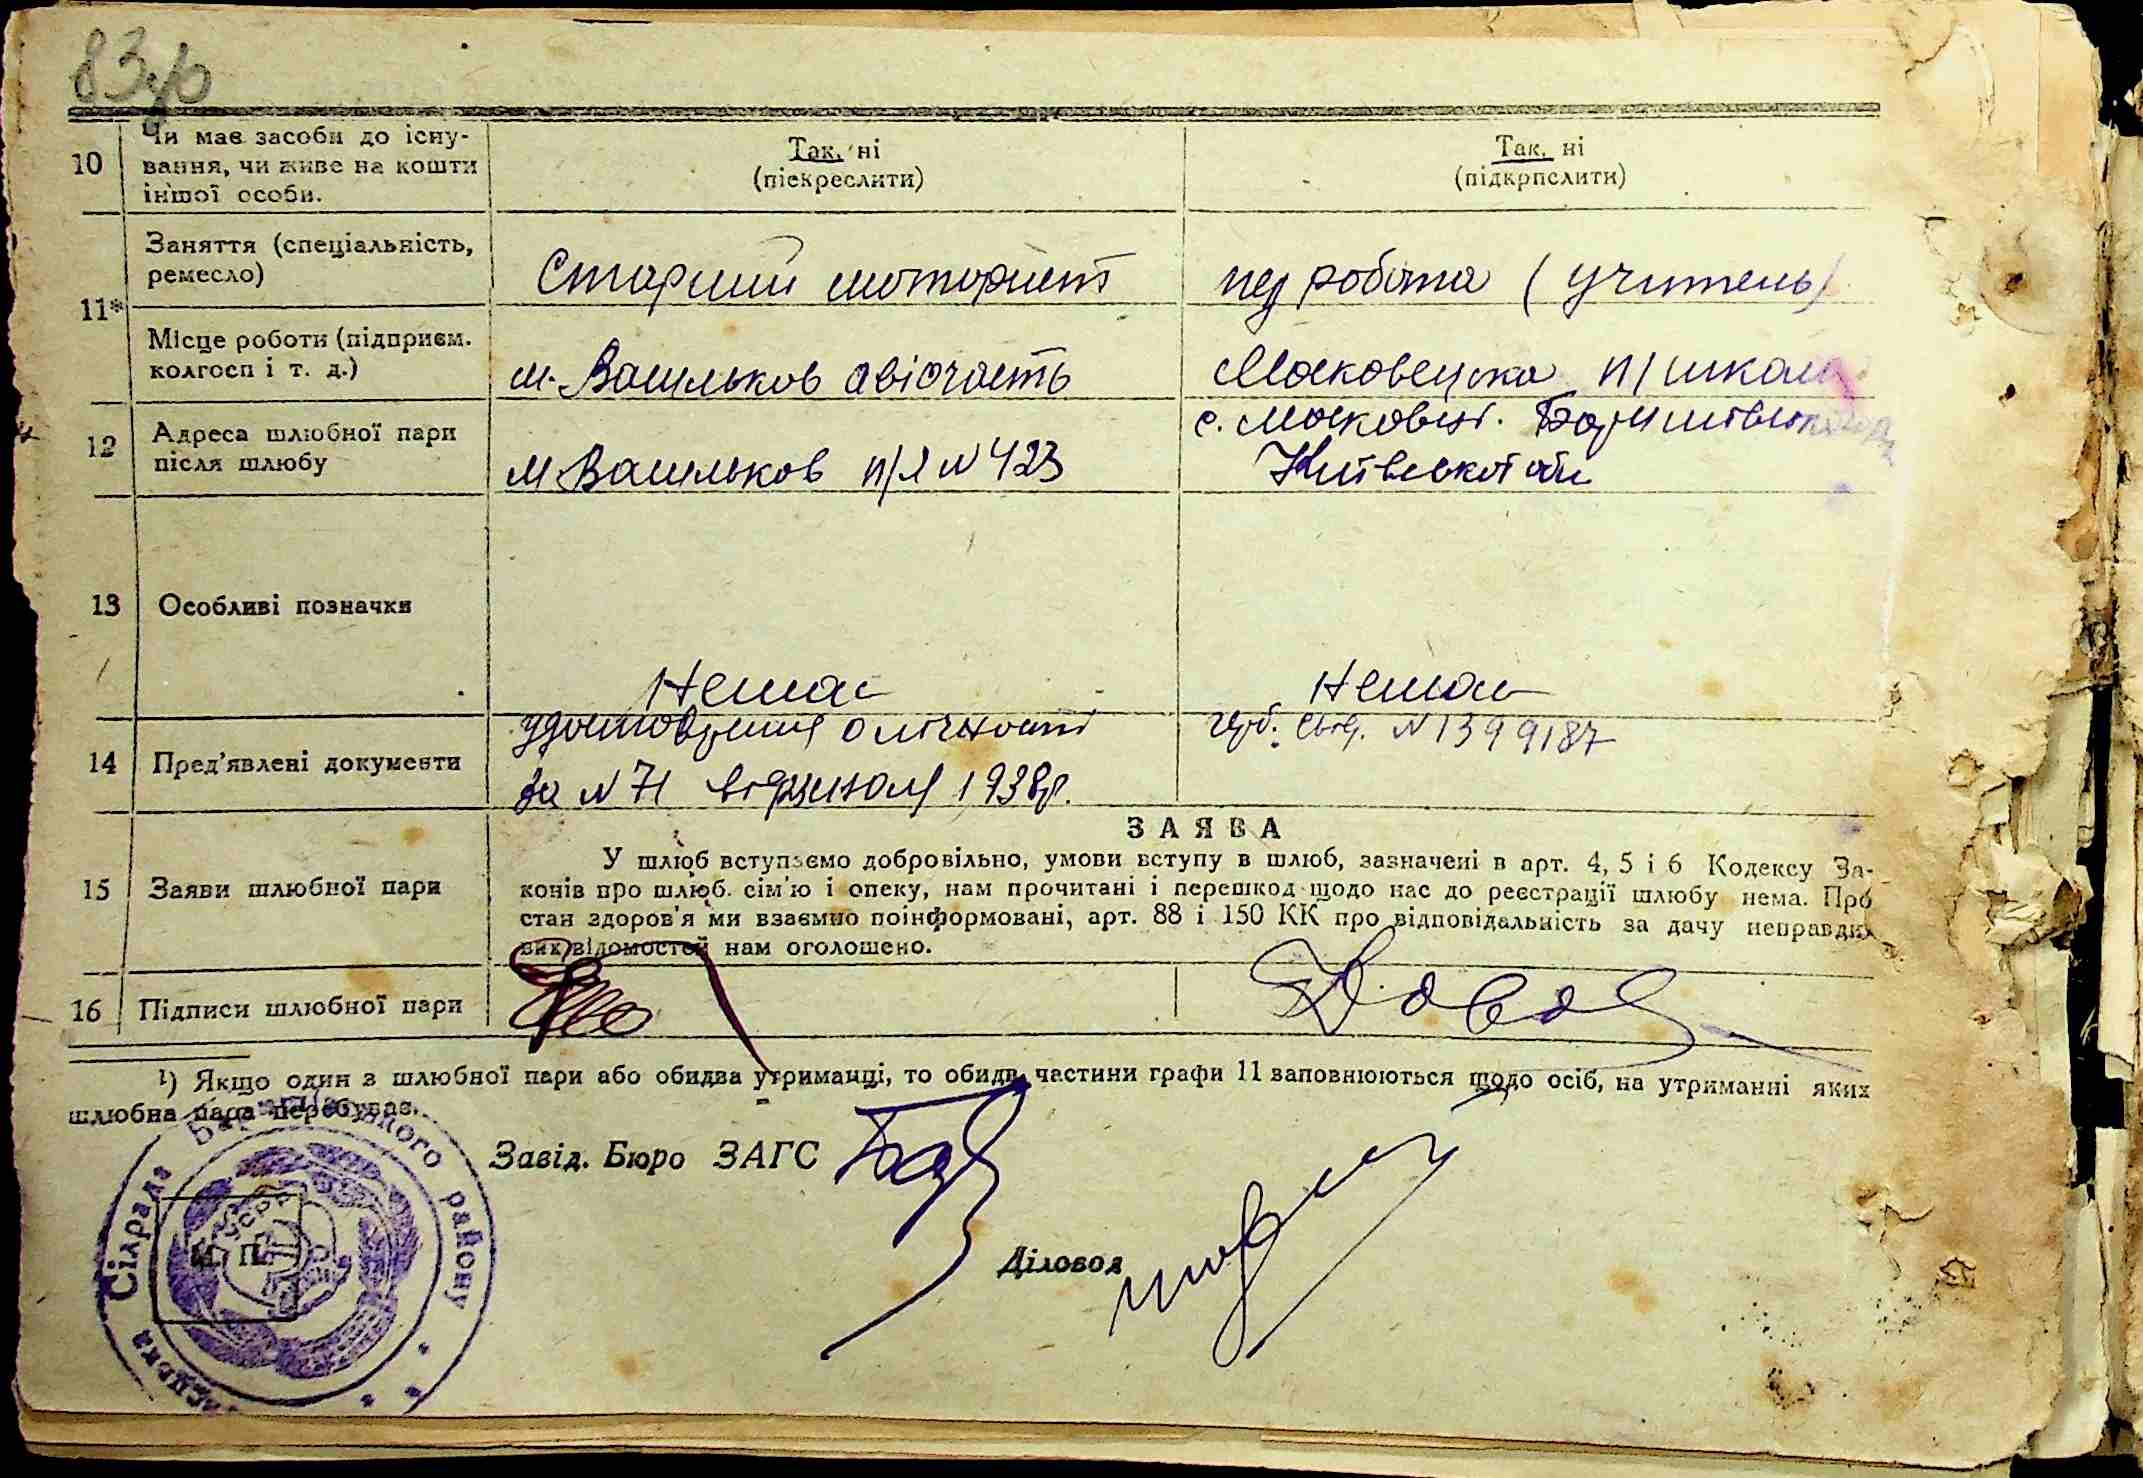 83
10 Чи має засоби до існу-
вання, чи живе на кошти
іншої особи.
Так, ні
(піекреслити)
Так, ні
(підкрпслити)
11*
Заняття (спеціальність,
ремесло)
Старший моторист
пед робота (учитель)
Місце роботи (підприєм.
колгосп і т. д.)
м. Васильков авіочасть
Масковецька п/школа
12 Адреса шлюбної пари
після шлюбу
м Васильков п/я N 423
с. Масковці. Баришівськ
Київської обл
13 Особливі позначки
Немає
Немає
14 Пред'явлені документи
удостоврения о лічності
за N 71 1938р.
N 1399187
15 Заяви шлюбної пари
ЗАЯВА
У шлюб вступаємо добровільно, умови вступу в шлюб, зазначені в арт. 4, 5 і 6 Кодексу За-
конів про шлюб. сім'ю і опеку, нам прочитані і перешкод щодо нас до реєстрації шлюбу нема. Про
стан здоров'я ми взаємно поінформовані, арт. 88 і 150 КК про відповідальність за дачу неправди
вих відомостей нам оголошено.
16 Підписи шлюбної пари
¹) Якщо один з шлюбної пари або обидва утриманці, то обидв частини графи 11 заповнюються щодо осіб, на утриманні яких
шлюбна пара перебуває.
Завід. Бюро ЗАГС
Діловод
М. П.
УСРР
Сілрада Баришівського району